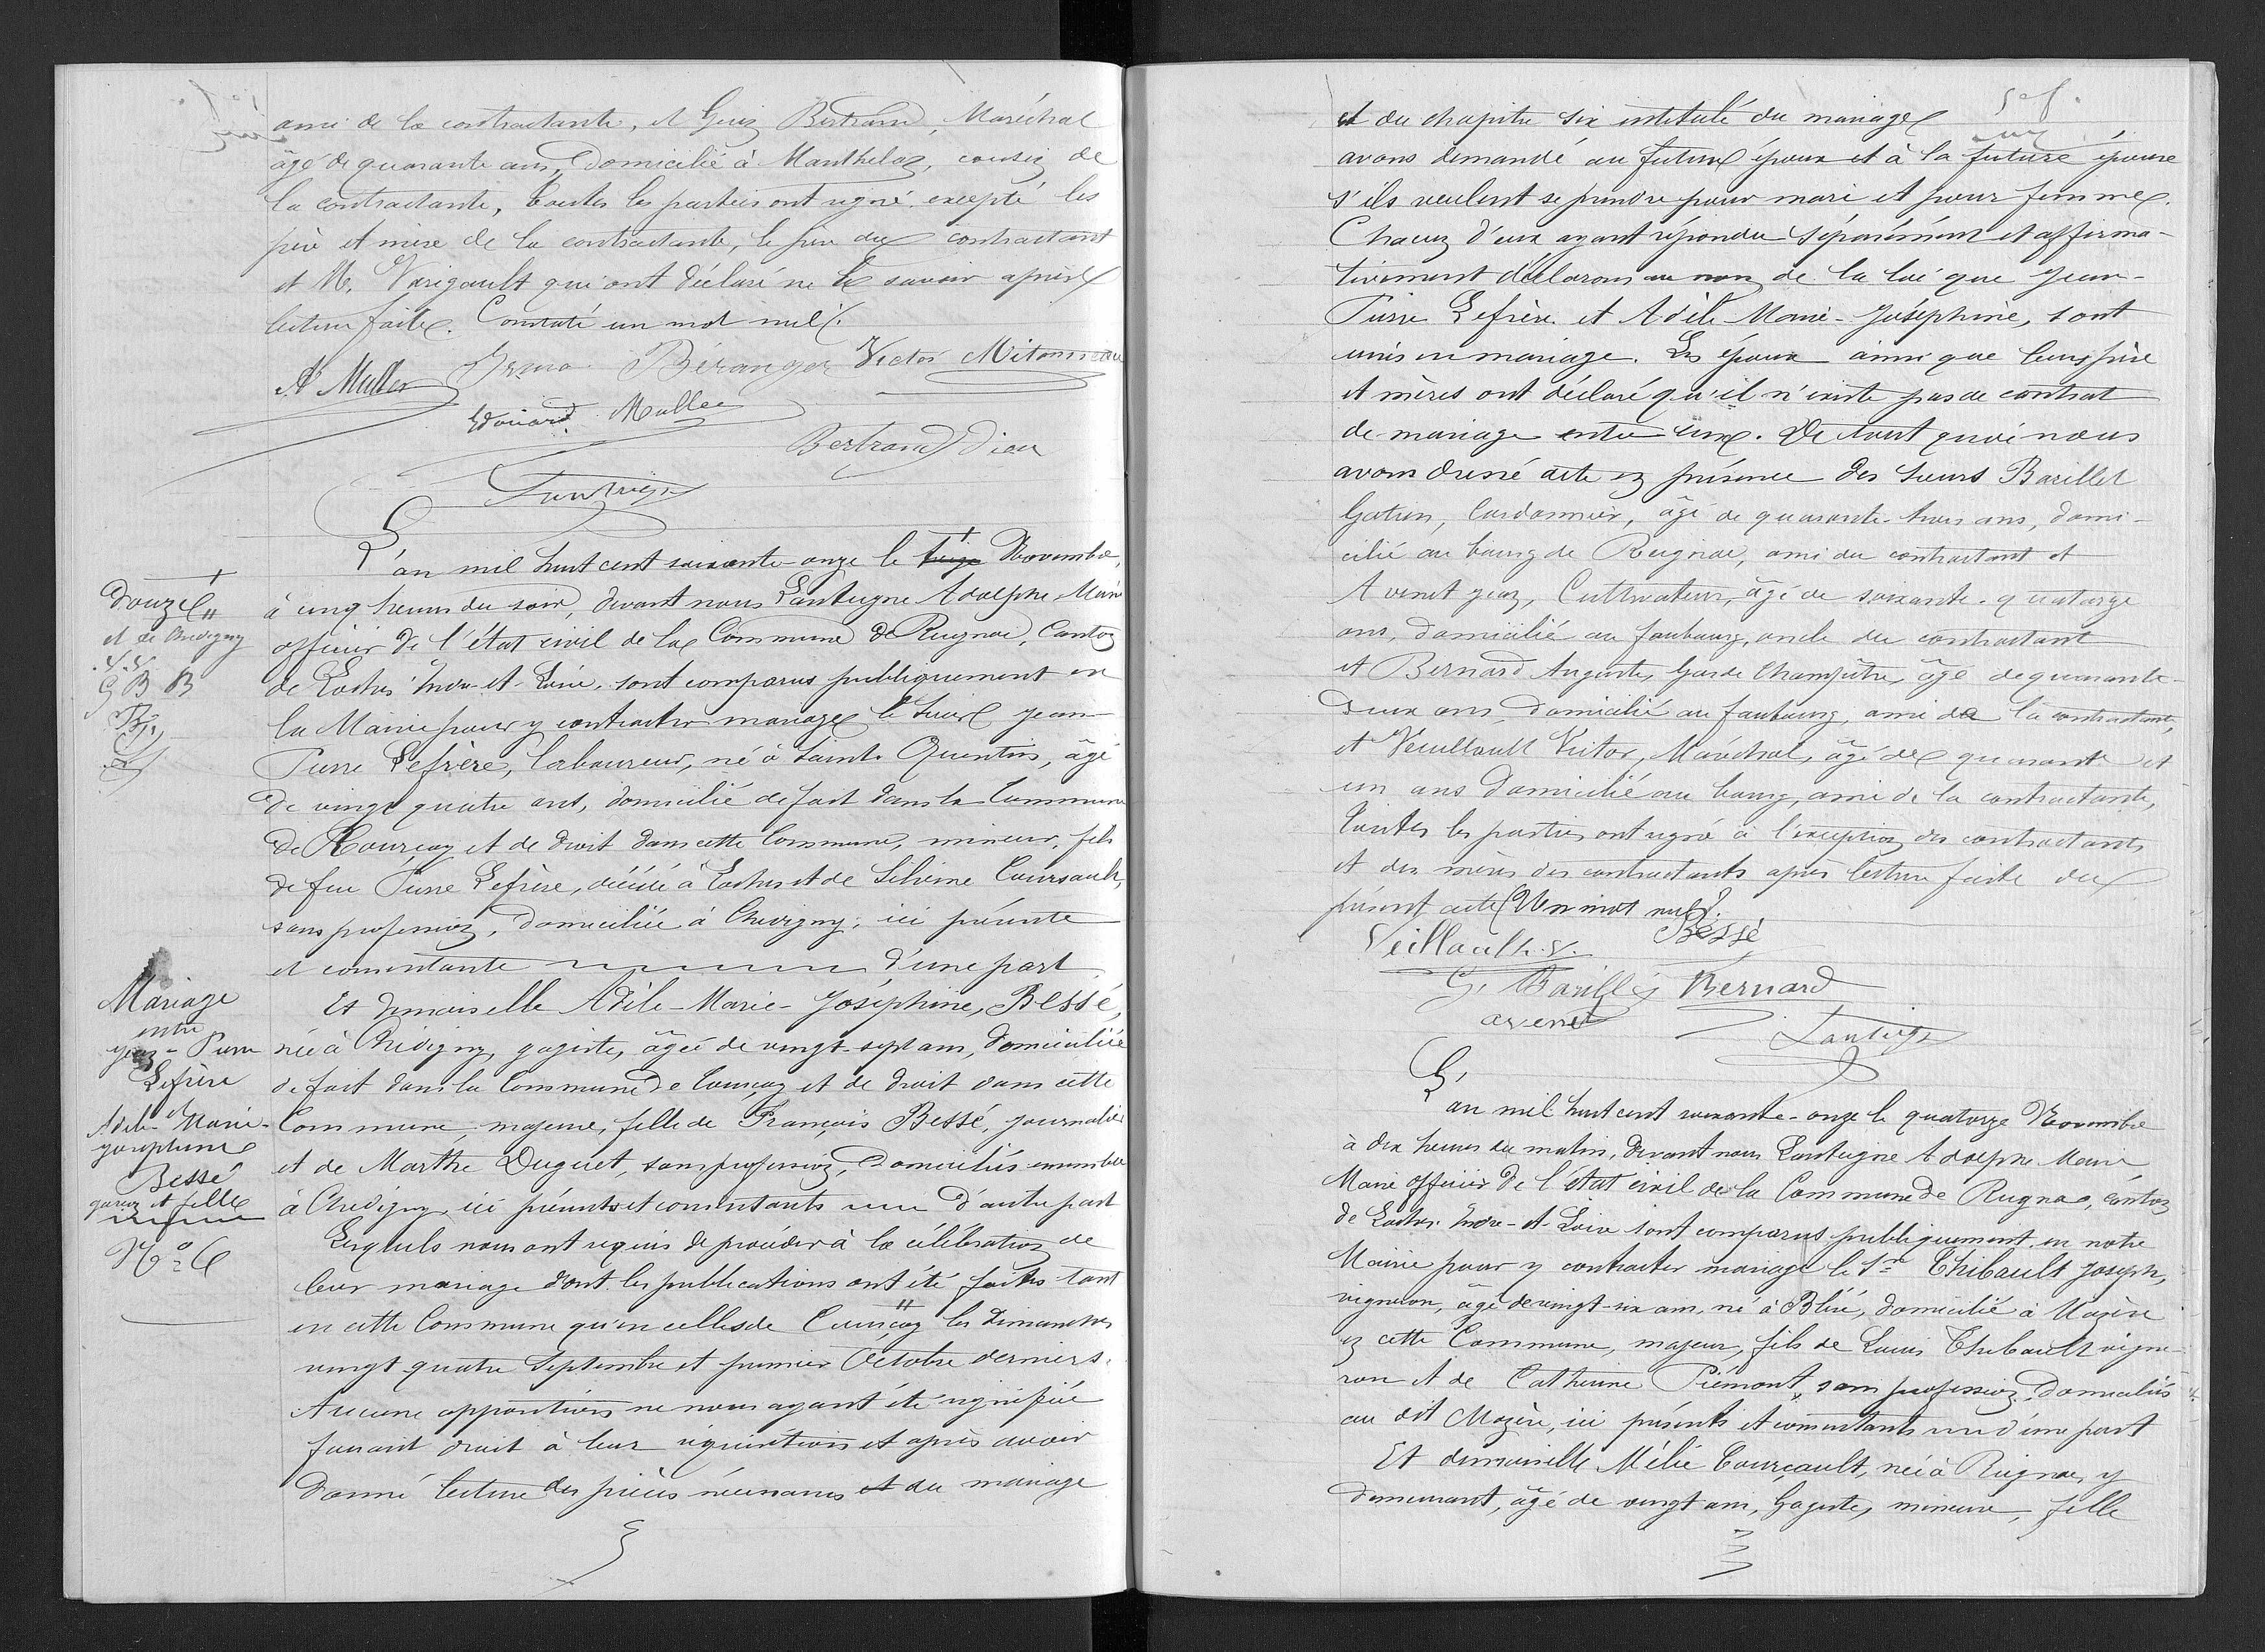 ami de la contractante, et Guiz Bertrand, Maréchal
âgé de quarante ans, domicilié à Manthelaz, cousiz de
la contractante, toutes les parties ont signé excepté les
père et mère de la contractante, le père du contractant
et M. Varigault qui ont déclaré ne le savoir après
lecture faite. Constaté un mot nul.
A Muller Irma Béranger Victor Mitonneau
Edouard Muller
Bertrand Dieu
Lanteigne
L'an mil huit cent soixante-onze le treize Novembre,
à cinq heures du soir, devant nous Lanteigne Adolphe Maire
officier de l'état civil de la Commune de Reignac, Canton
de Loches Indre-et-Loire, sont comparus publiquement en
la Mairie pour y contracter mariage le sieur Jean-
Pierre Lefrère, laboureur, né à Saint Quentin, âgé
de vingt quatre ans, domicilié de fait dans la Commune
de Courçay et de droit dans cette Commune, mineur, fils
de feu Pierre Lefrère, décédé à Loches et de Silvine Coursault,
sans profession, domiciliée à Chedigny, ici présente
et consentante d'une part
Et demoiselle Adèle-Marie-Joséphine, Bessé,
née à Chédigny, gagiste, âgée de vingt-sept ans, domiciliée
de fait dans la Commune de Courçay et de droit dans cette
Commune, majeure, fille de François Bessé, journalier
et de Marthe Duguet, sans profession, domiciliés ensemble
à Chédigny, ici présents et consentants d'autre part
Lesquels nous ont requis de procéder à la célébration de
leur mariage dont les publications ont été faites tant
en cette Commune qu'en celles de Courçay " les dimanches
vingt quatre Septembre et premier Octobre derniers.
Aucune opposition ne nous ayant été signifiée
faisant droit à leur réquisition et après avoir
donné lecture des pièces nécessaires et du mariage
douze "
et de Chedigny
V. V.
G B B
B.
Mariage
entre
Jean-Pierre
Lefrère
et
Adèle-Marie-
Joséphine
Bessé
garçon et fille
No 6
5e f.
et du chapitre six intitulé du mariage
avons demandé au futur époux et à la future épouse
s'ils veulent se prendre pour mari et pour femme.
Chacun d'eux ayant répondu séparément et affirma-
tivement déclarons au nom de la loi que Jean-
Pierre Lefrère et Adèle Marie-Joséphine, sont
unis en mariage. Les époux ainsi que leurs père
et mères ont déclaré qu'il n'existe pas de contrat
de mariage entre eux. De tout quoi nous
avons dressé acte en présence des sieurs Barillet
Gatien, Cordonnier, âgé de quarante-trois ans, domi-
cilié au bourg de Reignac, ami du contractant et
Avenet Jean, Cultivateur, âgé de soixante-quatorze
ans, domicilié au faubourg, oncle du contractant
et Bernard Auguste, Garde Champêtre, âgé de quarante-
deux ans, domicilié au faubourg, ami de la contractante,
et Veuillault Victor, Maréchal, âgé de quarante et
un ans domicilié au bourg, ami de la contractante,
toutes les parties ont signé à l'exception des contractants
et des mères des contractants après lecture faite du
présent acte. Un mot nul.
Veillault. V. Bessé
G. Barillé Bernard
avenet
Lanteigne
L'an mil huit cent soixante-onze le quatorze Novembre
à dix heures du matin, devant nous Lanteigne Adolphe Maire
Maire officier de l'état civil de la Commune de Reignac, canton
de Loches. Indre-et-Loire sont comparus publiquement en notre
Mairie pour y contracter mariage le Sr Thibault Joseph,
vigneron, âgé de vingt-six ans, né à Bléré, domicilié à Mazère
en cette Commune, majeur, fils de Louis Thibault vigne-
ron et de Catherine Piémont, sans profession, domiciliés
au dit Mazère, ici présents et consentants d'une part
Et demoiselle Mélie Courçault, née à Reignac, y
demeurant, âgé de vingt ans, Gagiste, mineure, fille